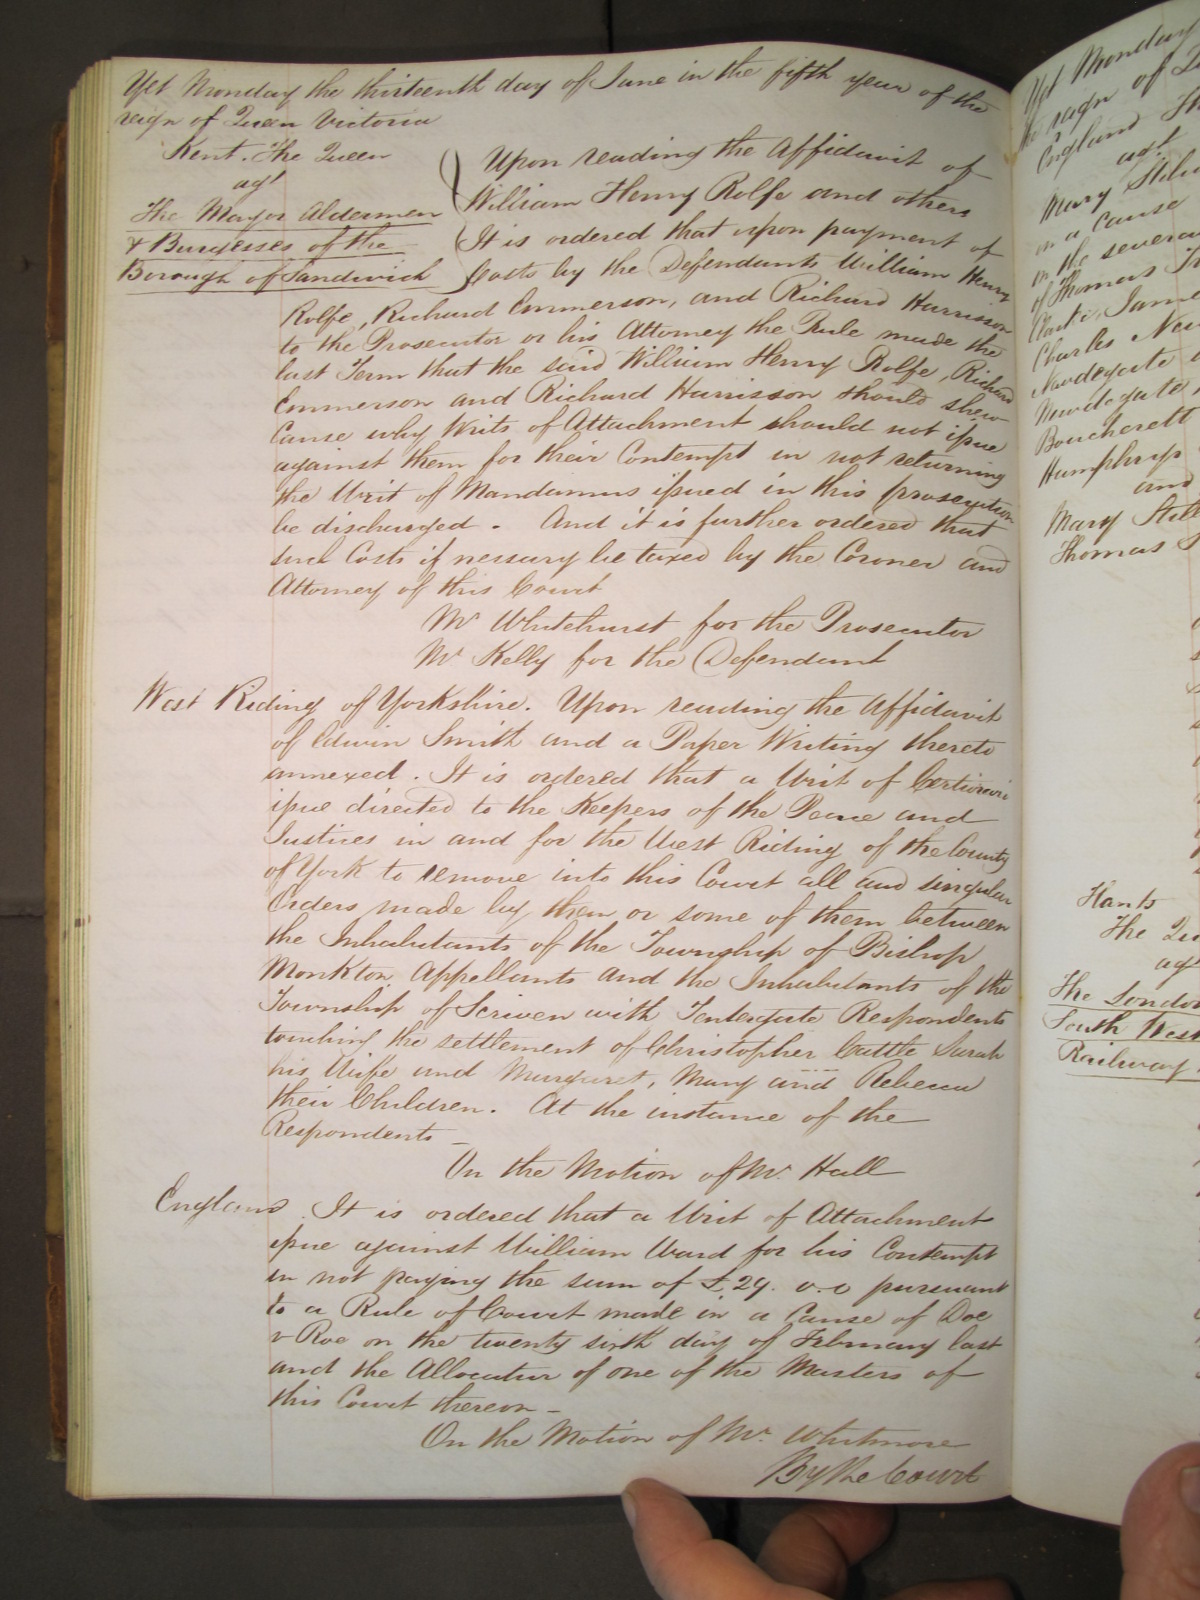 Yet Monday the thirteenth day of June in the fifth year of the
reign of Queen Victoria
Kent. The Queen
agt
The Mayor Aldermen
& Burgesses of the
Borough of Sandwich
Upon reading the Affidavit of
William Henry Rolfe and others
It is ordered that upon payment of
Costs by the Defendants William Henry
Rolfe, Richard Emmerson, and Richard Harrisson
to the Prosecutor or his Attorney the Rule made the
last Term that the said William Henry Rolfe, Richard
Emmerson and Richard Harrisson should shew
Cause why Writs of Attachment should not issue
against them for their Contempt in not returning
the Writ of Mandamus issued in this prosecution
be discharged. And it is further ordered that
such Costs if nessary be taxed by the Coroner and
Attorney of this Court
Mr Whitehurst for the Prosecutor
Mr Kelly for the Defendant
West Riding of Yorkshire. Upon reading the Affidavit
of Edwin Smith and a Paper Writing thereto
annexed. It is ordered that a Writ of Certiorari
issue directed to the Keepers of the Peace and
Justices in and for the West Riding of the County
of York to remove into this Court all and singular
Orders made by them or some of them between
the Inhabitants of the Township of Bishop
Monkton Appellants and the Inhabitants of the
Township of Scriven with Tentergate Respondents
touching the settlement of Christopher Cattle Sarah
his Wife and Margaret, Mary and Rebecca
their Children. At the instance of the
Respondents —
On the Motion of Mr. Hall
England. It is ordered that a Writ of Attachment
issue against William Ward for his Contempt
in not paying the sum of £29. 0. 0 pursuant
to a Rule of Court made in a Cause of Doe
v Roe on the twenty sixth day of February last
and the Allocatur of one of the Masters of
this Court thereon —
On the Motion of Mr. Whitmore
By the Court
Yet Monday
the reign of
England
agt
Mary
in a Cause
in the several
of Thomas
Charles
Newdegate
Newdegate
Boucherett
Humphrys
and
Mary
Thomas
Hants
The
agt
The London
South West
Railway